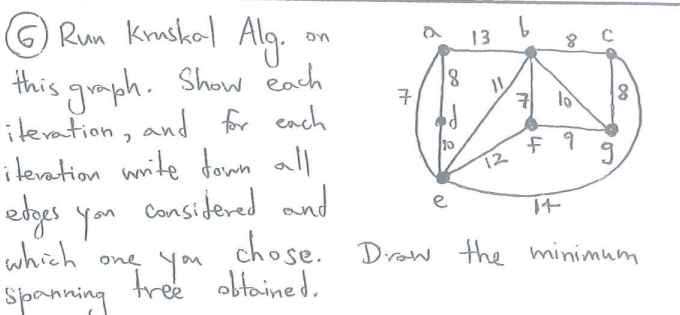 6 Run Kruskal Alg. on
this graph. Show each
iteration, and for each
iteration write down all
edges you considered and
which one you chose. Draw the minimum
spanning tree obtained.
a 13 b 8 c
7 8 11 7 10 8
d
10 12 f 9 g
e 14